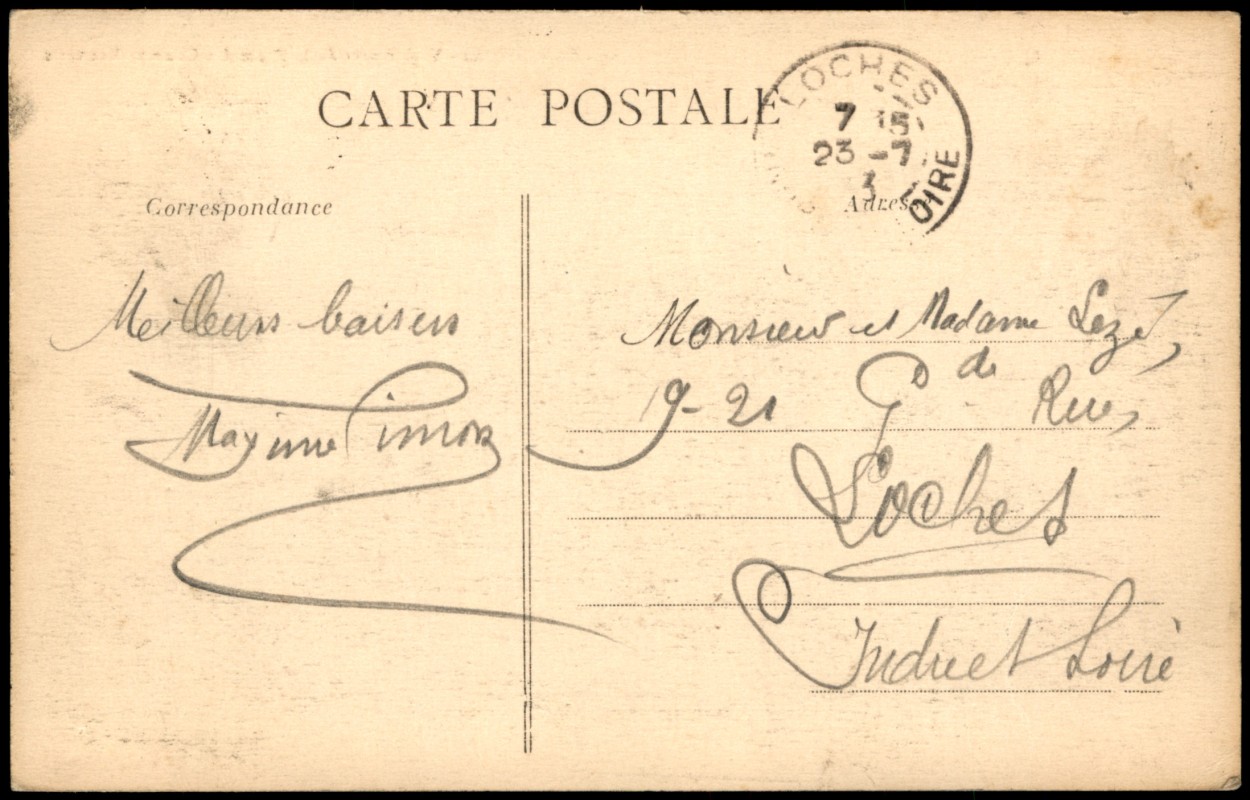 CARTE POSTALE
LOCHES
7 15
23 -7
3
OIRE
Correspondance
Adresse
Meilleurs baisers
Maxime Simon
Monsieur et Madame Lezé,
19-21 Gde Rue,
Loches
Indre et Loire